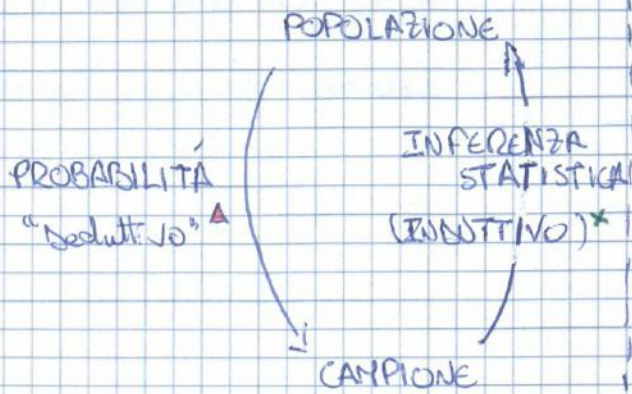 POPOLAZIONE
PROBABILITÁ
"Deduttivo" ▲
INFERENZA
STATISTICA
(INDUTTIVO) ×
CAMPIONE